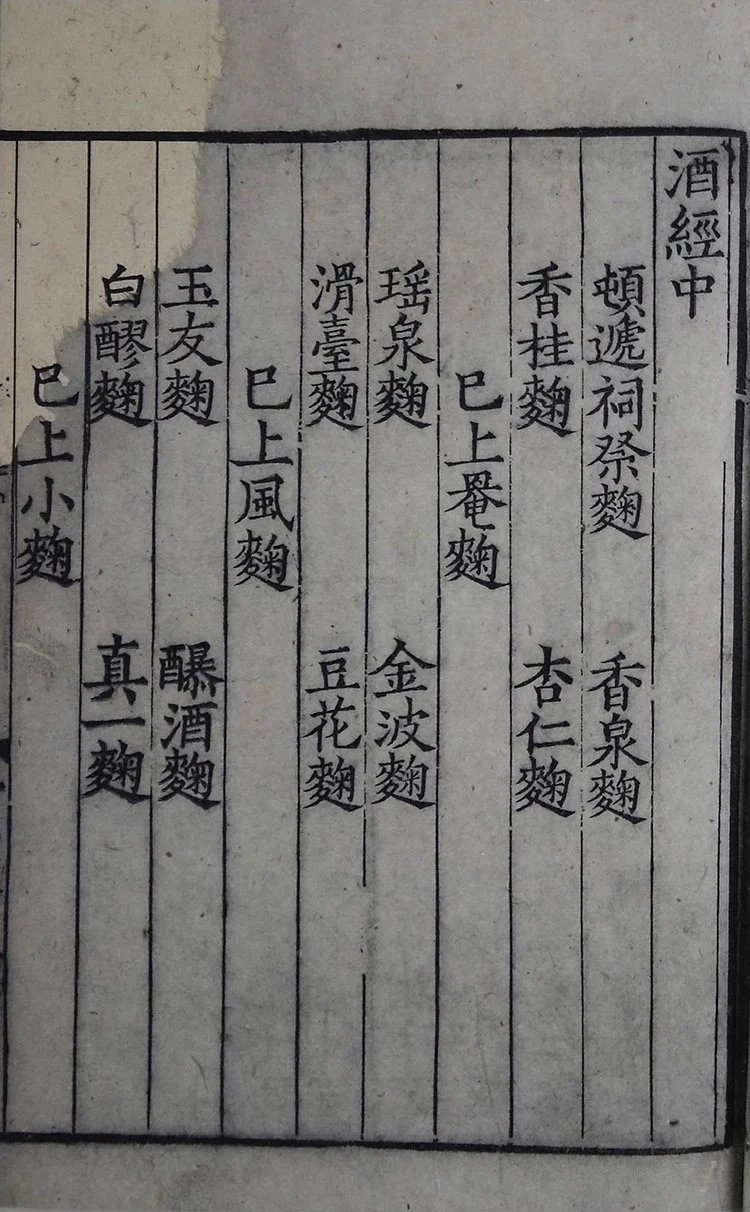 酒經中
頓遞祠祭麴 香泉麴
香桂麴 杏仁麴
已上罨麴
瑶泉麴 金波麴
滑臺麴 豆花麴
已上風麴
玉友麴 醿酒麴
白醪麴 真一麴
已上小麴